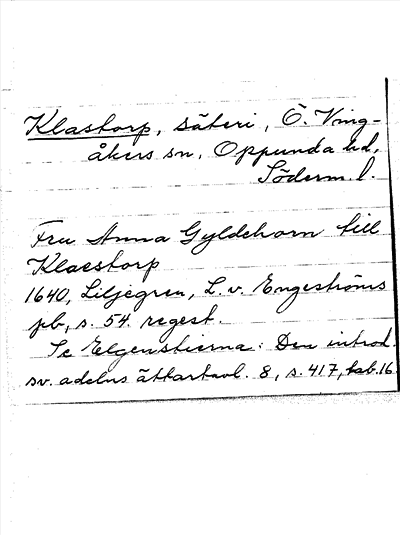 Klastorp, säteri, Ö. Ving-
åkers sn, Oppunda hd,
Söderm. l.
Fru Anna Gyldehorn till
Klaestorp
1640, Liljegren, L. v. Engeströms
pb, s. 54. regest.
Se Elgenstierna: Den introd.
sv. adelns ättartavl. 8, s. 417, tab. 16